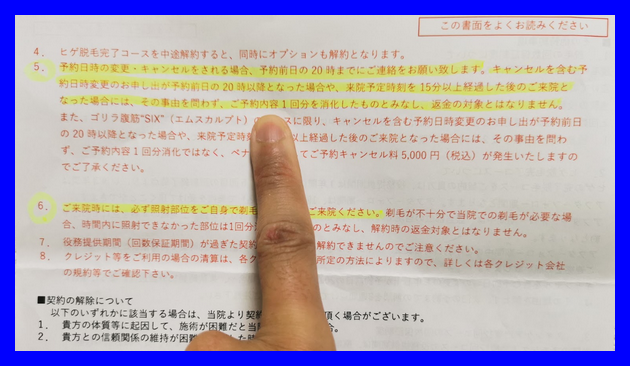 この書面をよくお読みください
4. ヒゲ脱毛完了コースを中途解約すると、同時にオプションも解約となります。
5. 予約日時の変更・キャンセルをされる場合、予約前日の20時までにご連絡をお願い致します。キャンセルを含む予
約日時変更のお申し出が予約前日の20時以降となった場合や、来院予定時刻を15分以上経過した後のご来院と
なった場合には、その事由を問わず、ご予約内容1回分を消化したものとみなし、返金の対象とはなりません。
また、ゴリラ腹筋"SIX"（エムスカルプト）の スに限り、キャンセルを含む予約日時変更のお申し出が予約前日
の20時以降となった場合や、来院予定時 以上経過した後のご来院となった場合には、その事由を問わ
ず、ご予約内容1回分消化ではなく、ペナ てご予約キャンセル料5,000円（税込）が発生いたしますの
でご了承ください。
6. ご来院時には、必ず照射部位をご自身で剃毛 ご来院ください。剃毛が不十分で当院での剃毛が必要な場
合、時間内に照射できなかった部位は1回分 のとみなし、解約時の返金対象とはなりません。
7. 役務提供期間（回数保証期間）が過ぎた契約 解約できませんのでご注意ください。
8. クレジット等をご利用の場合の清算は、各ク 所定の方法によりますので、詳しくは各クレジット会社
の規約等でご確認下さい。
■契約の解除について
以下のいずれかに該当する場合は、当院より契約 頂く場合がございます。
1. 貴方の体質等に起因して、施術が困難だと当 合。
2. 貴方との信頼関係の維持が困難 した時